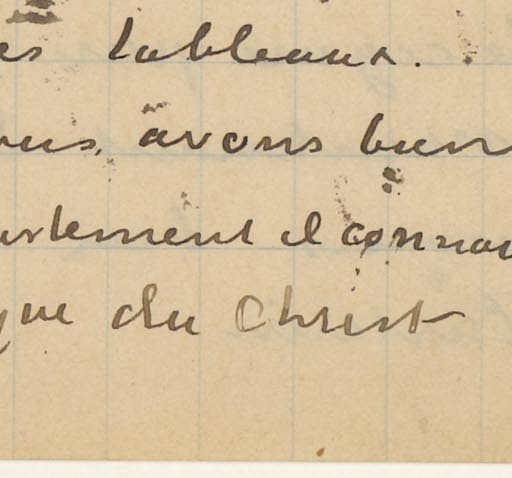 es tableaux.
ous avons bien
artement il connai
que du Christ